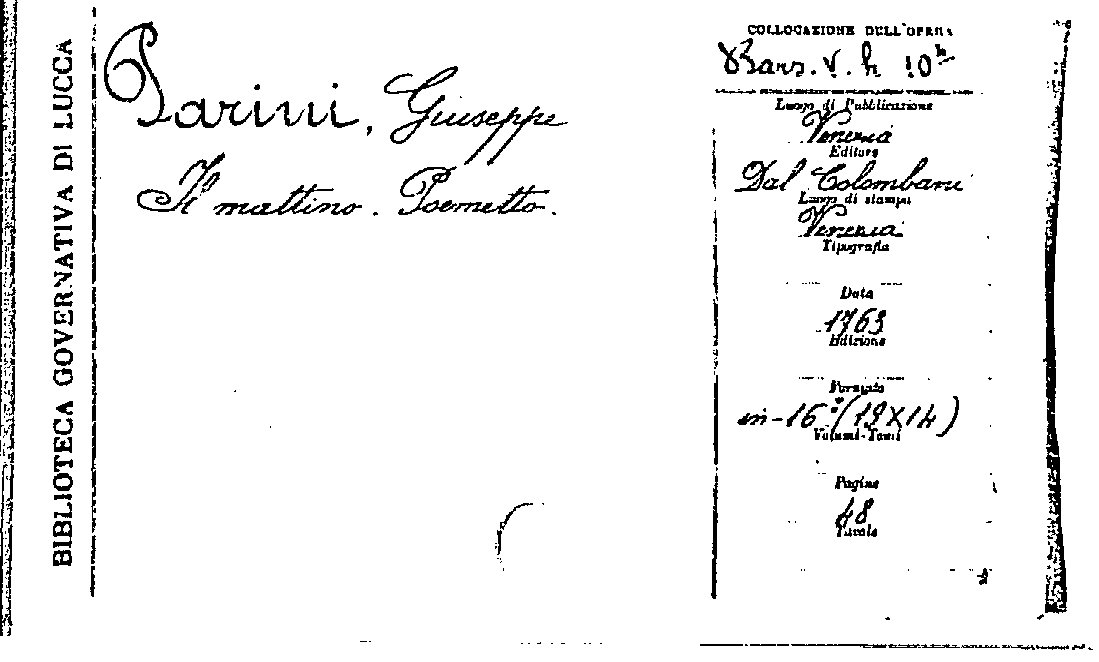 BIBLIOTECA GOVERNATIVA DI LUCCA
Parini, Giuseppe
Il mattino. Poemetto.
COLLOCAZIONE DELL'OPERA
Bars. V. h 10
Luogo di Pubblicazione
Venezia
Editore
Dal Colombani
Luogo di stampa
Venezia
Tipografia
Data
1763
Edizione
Formato
in-16° (19X14)
Volumi-Tomi
Pagine
48
Tavole